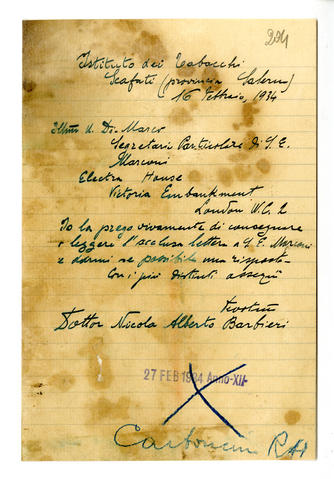 204
Istituto dei Tabacchi
Scafati (provincia Salerno)
16 Febbraio, 1934
Illmo U. Di Marco
Segretario Particolare di S. E.
Marconi
Electra House
Victoria Embankment
London W.C. 2
Io la prego vivamente di consegnare
e leggere l'acclusa lettera a S. E. Marconi
e darmi se possibile una risposta
Con i più distinti ossequi
Dottor Nicola Alberto Barbieri
27 FEB 1934 Anno XII